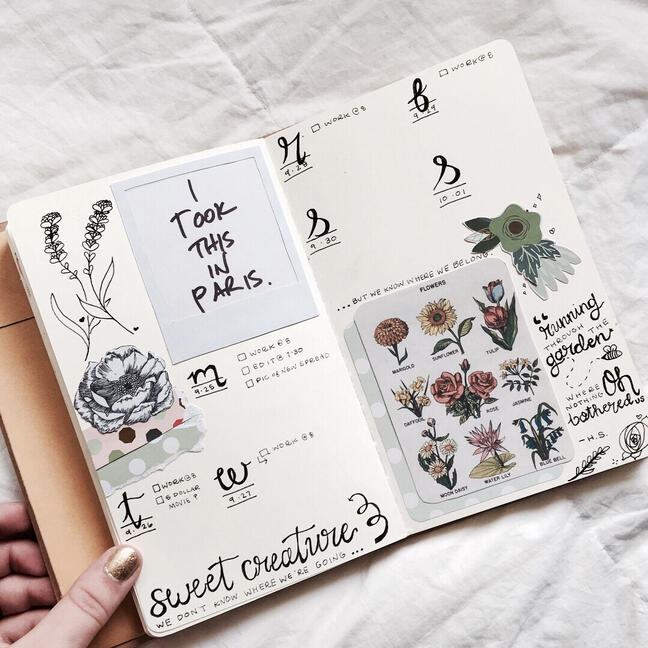 I
TOOK
THIS
IN
PARIS.
m
9·25
WORK@8
EDIT@7:30
PIC OF NEW SPREAD
t
9·26
WORK@8
5 DOLLAR
MOVIE?
w
9·27
WORK @8
sweet creature
WE DON'T KNOW WHERE WE'RE GOING ...
r
9·28
WORK@8
f
9·29
WORK@8
s
9·30
s
10·01
...BUT WE KNOW WHERE WE BELONG.
FLOWERS
MARIGOLD
SUNFLOWER
TULIP
DAFFODIL
ROSE
JASMINE
MOON DAISY
WATER LILY
BLUE BELL
"running
THROUGH THE
garden
WHERE
NOTHING
bothered us
—H.S.